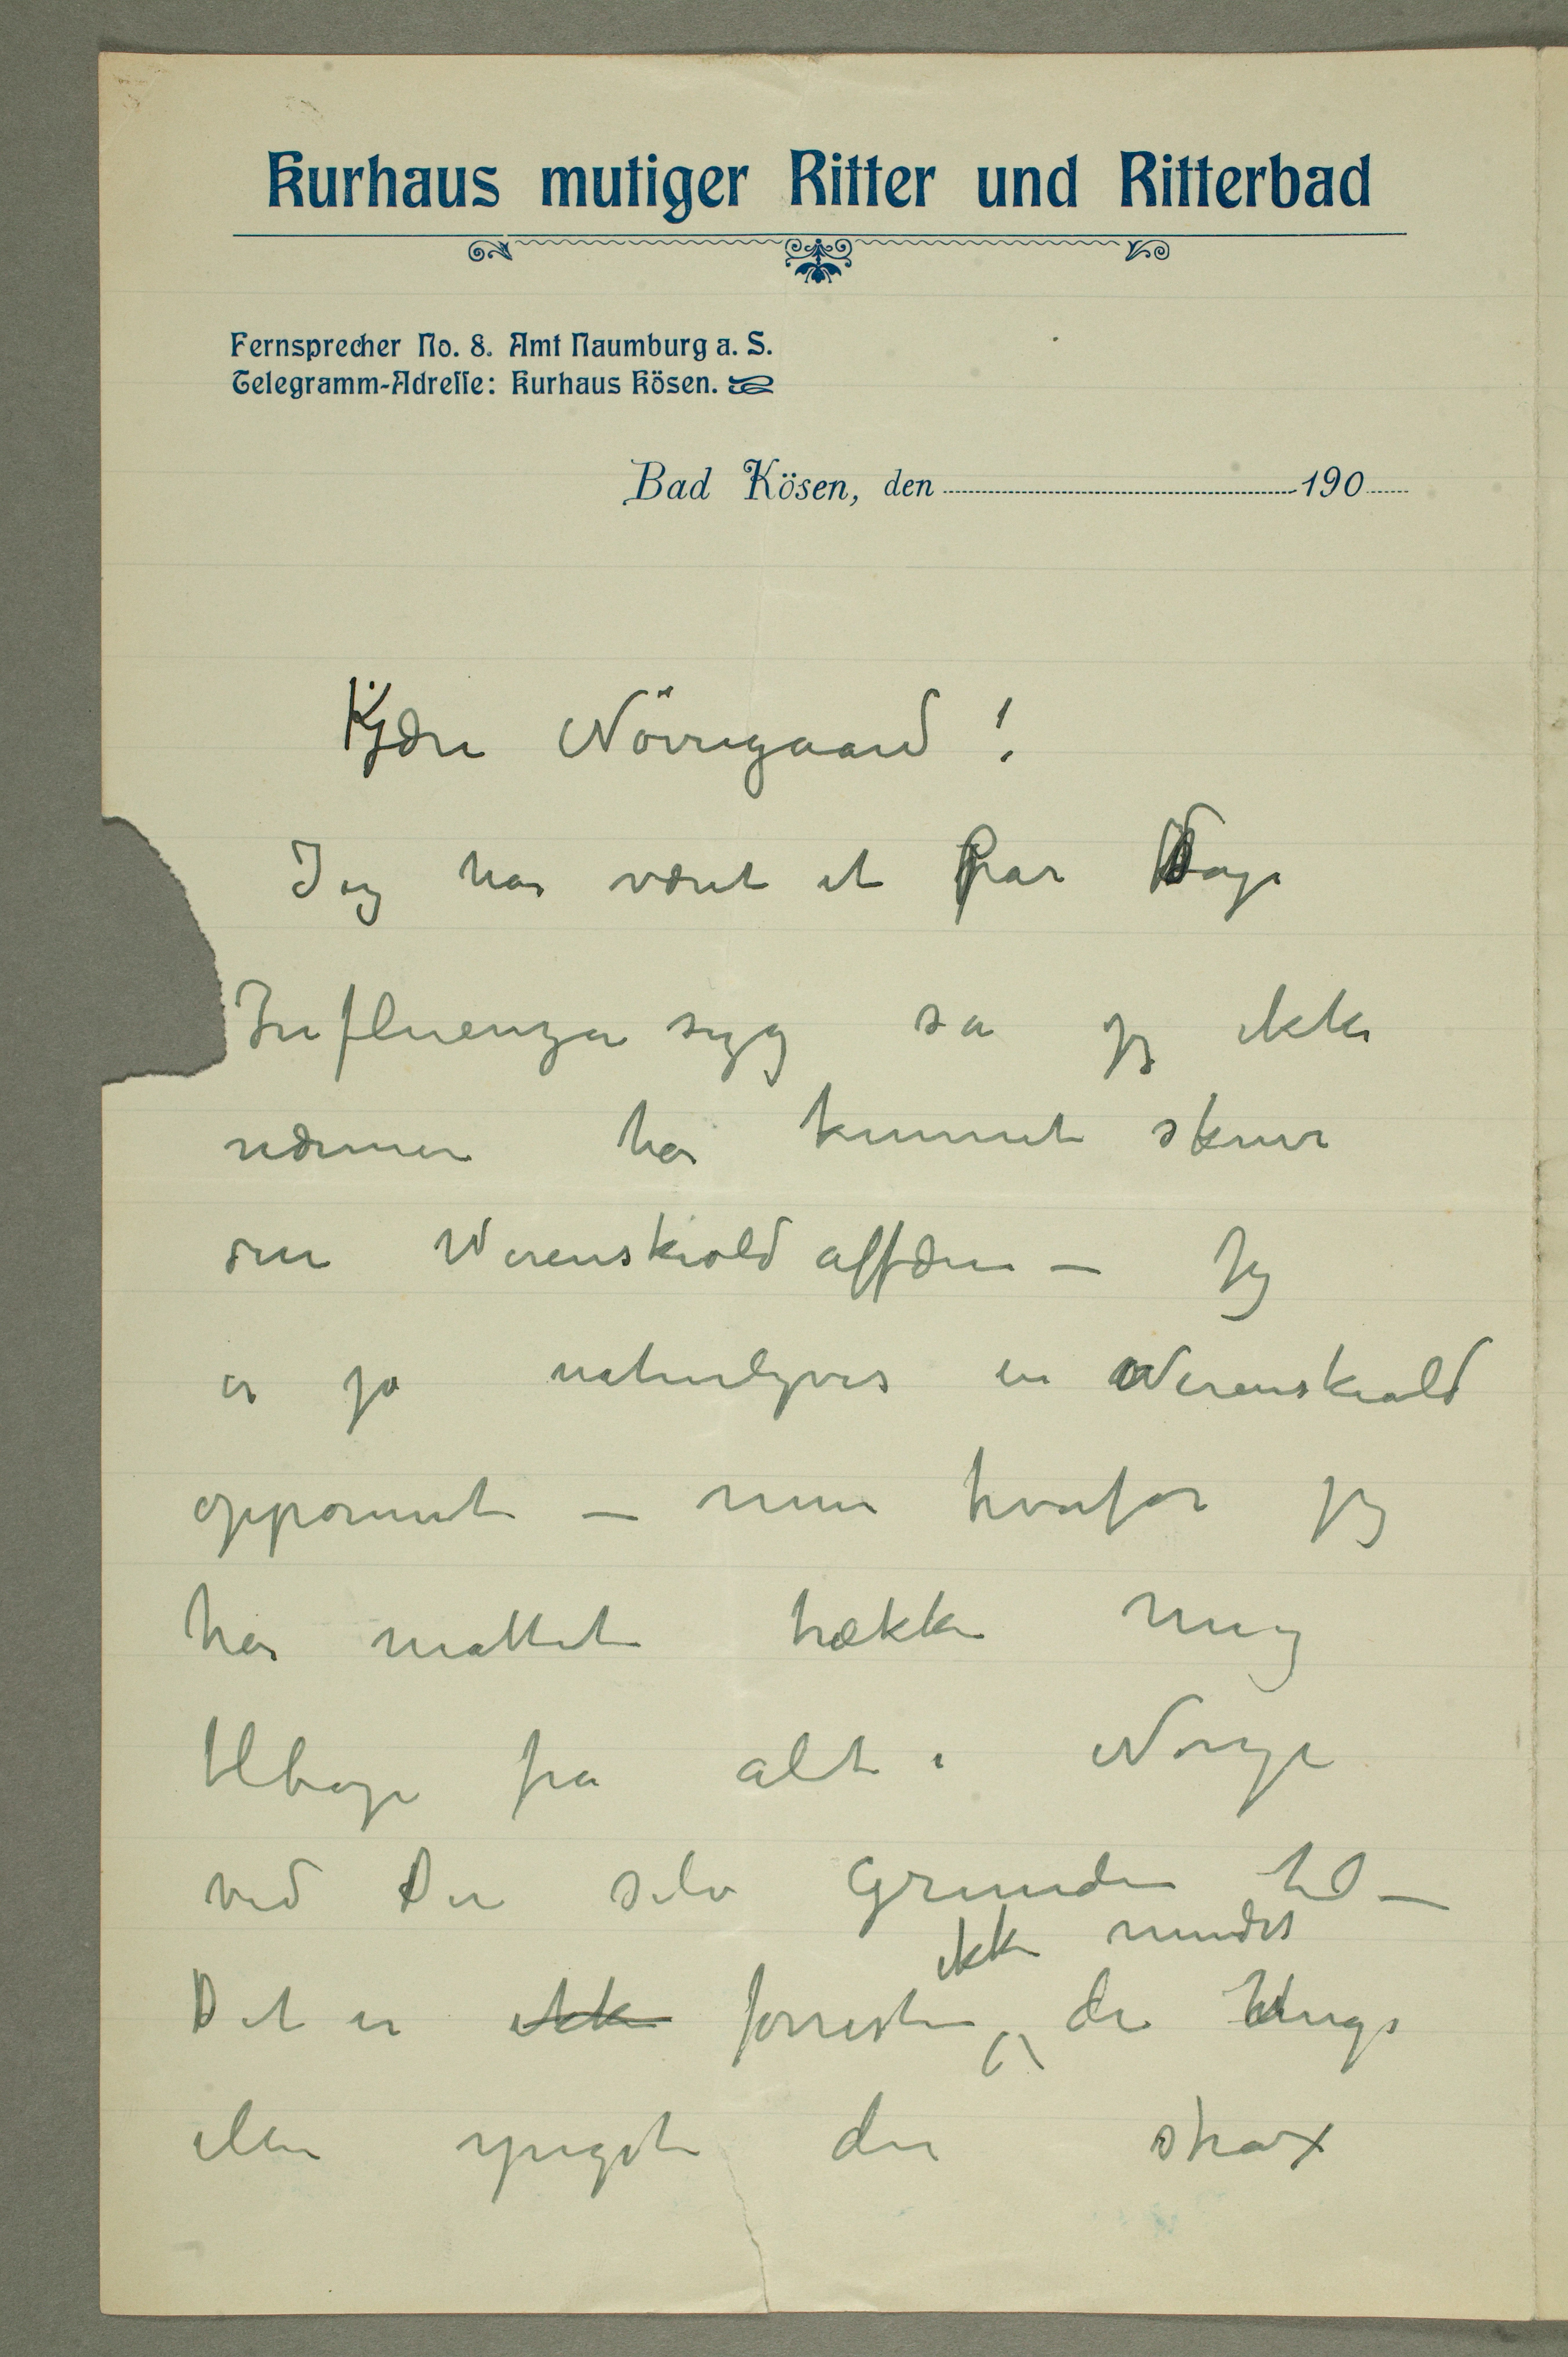 Kurhaus mutiger Ritter und Ritterbad
Fernsprecher No. 8. Amt Naumburg a. S.
Telegramm-Adresse: Kurhaus Kösen.
Bad Kösen, den 190
Kjære Nörregaard!
Jeg har været et par Dage
Influenza syg så jeg ikke
nærmere har kunnet skrive
om Werenskiold affæren – Jeg
er jo naturligvis en Werenskiold
opponent – men hvorfor jeg
har måttet trække mig
tilbage fra alt i Norge
ved Du selv Grunden til –
ikke mindst
Det er ikke forresten de Unge
eller yngste der strax